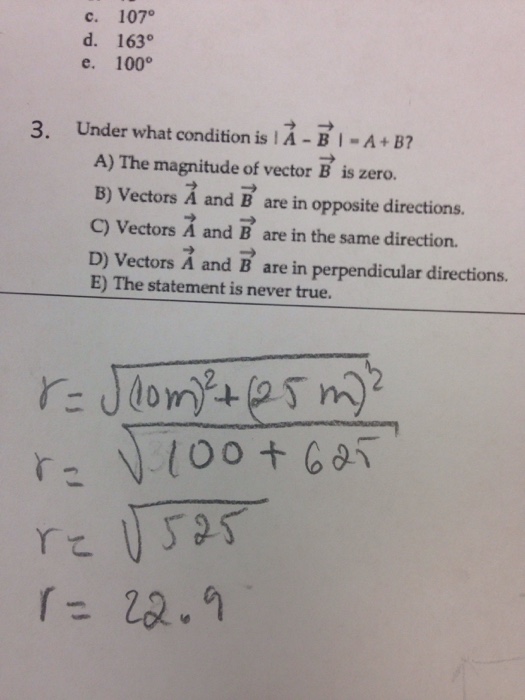 c. 107°
d. 163°
e. 100°
3. Under what condition is | A⃗ - B⃗ | = A + B?
A) The magnitude of vector B⃗ is zero.
B) Vectors A⃗ and B⃗ are in opposite directions.
C) Vectors A⃗ and B⃗ are in the same direction.
D) Vectors A⃗ and B⃗ are in perpendicular directions.
E) The statement is never true.
r = √(10m)² + (25 m)²
r = √100 + 625
r = √525
r = 22.9